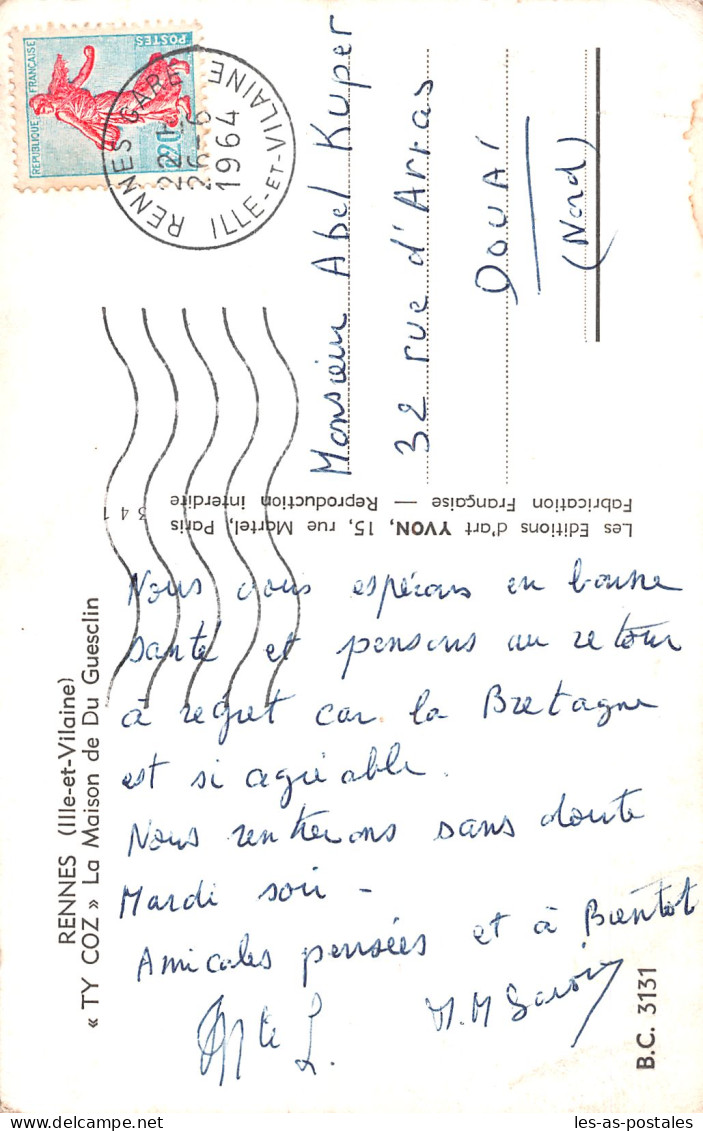 RENNES (Ille-et-Vilaine)
« TY COZ » La Maison de Du Guesclin
Nous vous espérons en bonne
santé et pensons au retour
à regret car la Bretagne
est si agréable.
Nous rentrerons sans doute
Mardi soir -
Amicales pensées et à Bientôt
B.C. 3131
Les Editions d'art YVON, 15, rue Martel, Paris
Fabrication Française — Reproduction interdite
341
REPUBLIQUE FRANÇAISE
POSTES
RENNES GARE
26-6
1964
ILLE-ET-VILAINE
Monsieur Abel Kuper
32 rue d'Arras
DOUAI
(Nord)
les-as-postales